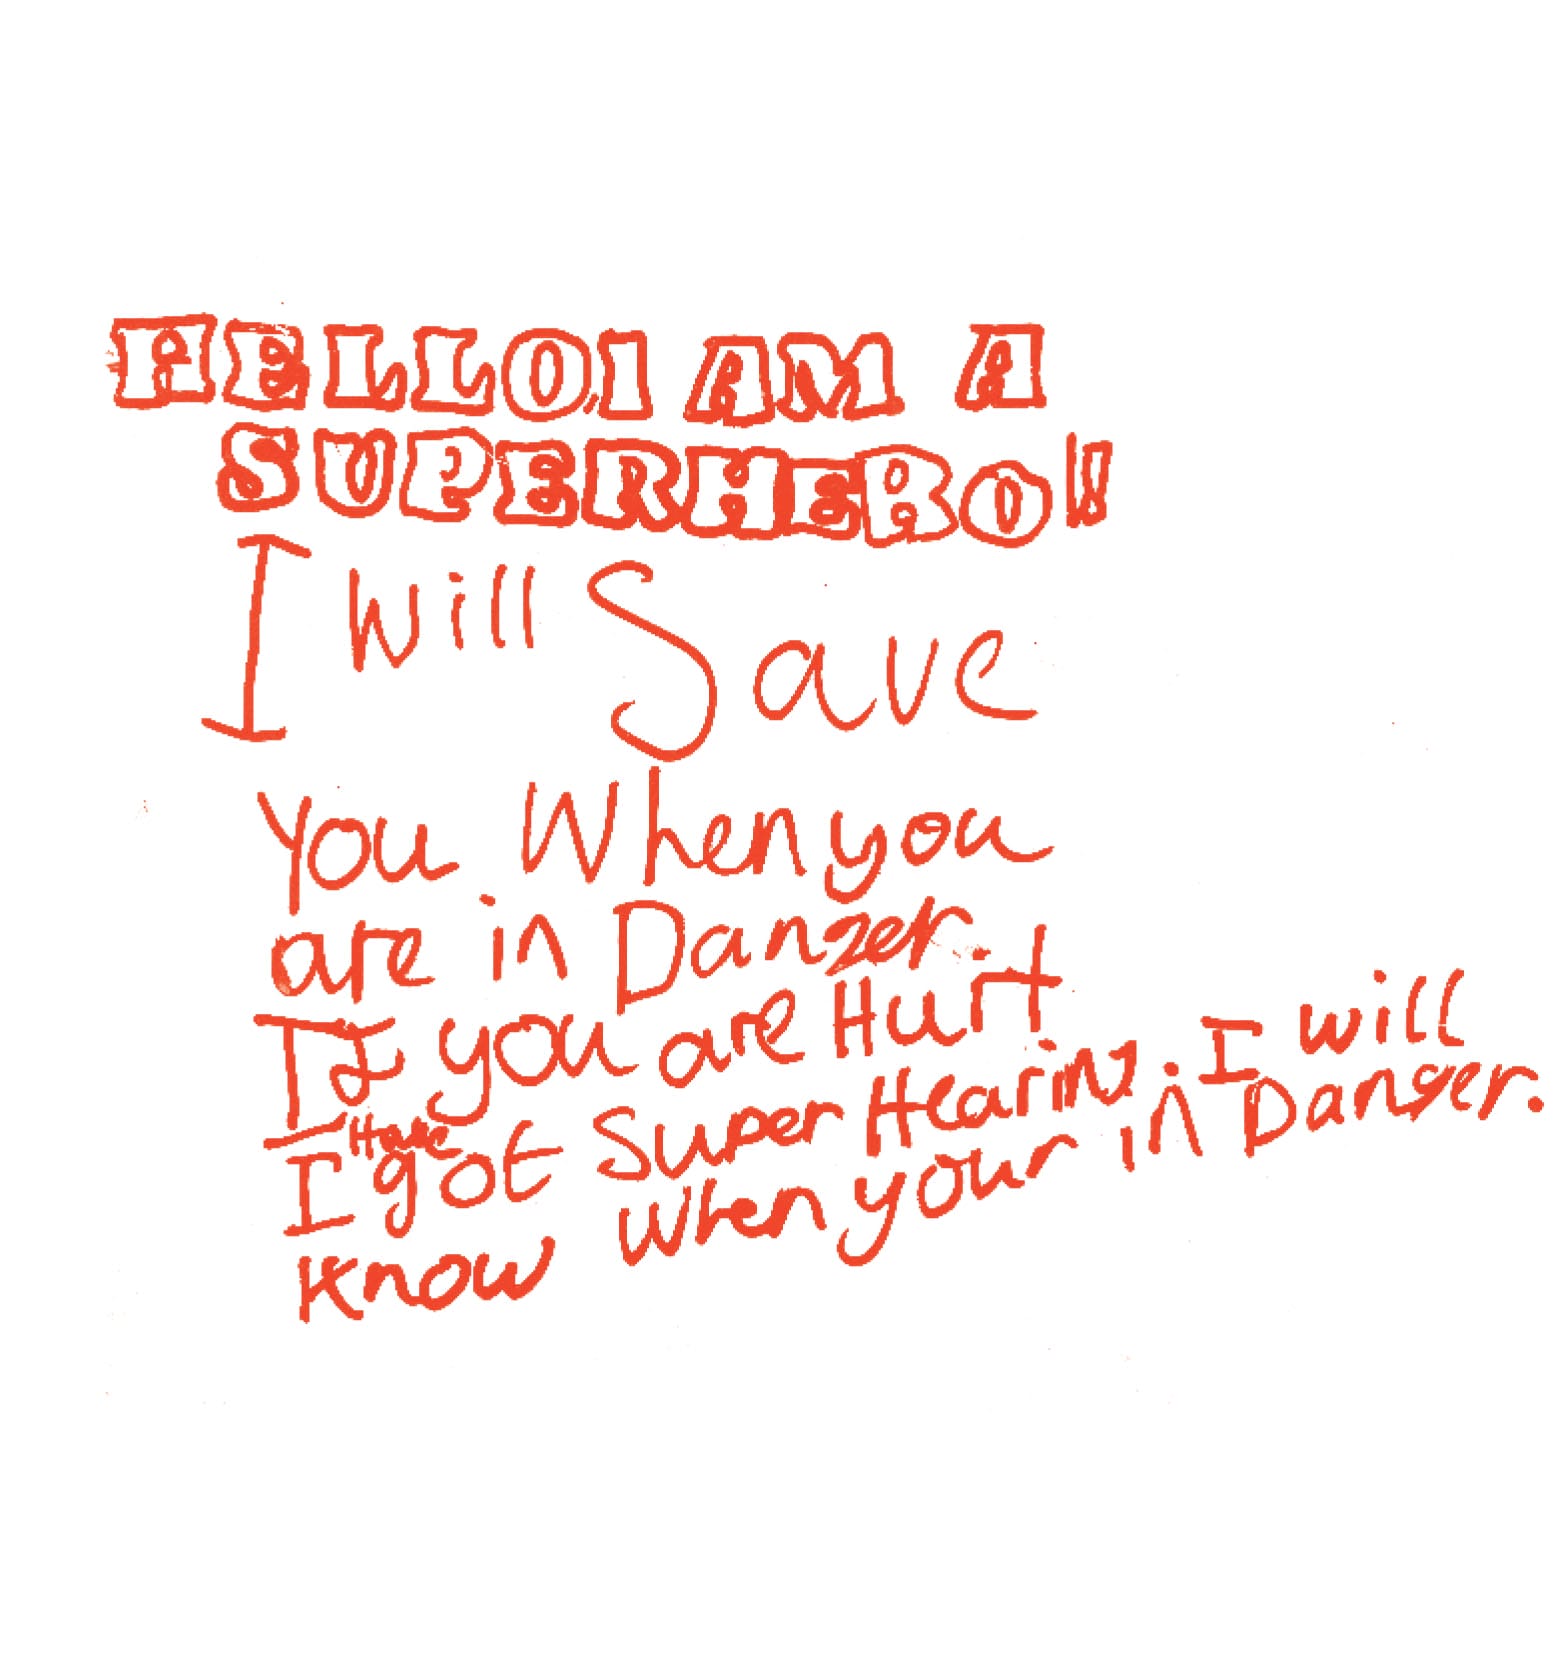 HELLO, I AM A
SUPERHERO!!
I Will Save
You When you
are in Danger.
If you are Hurt
I Have got Super Hearing. I will
Know When your in Danger.